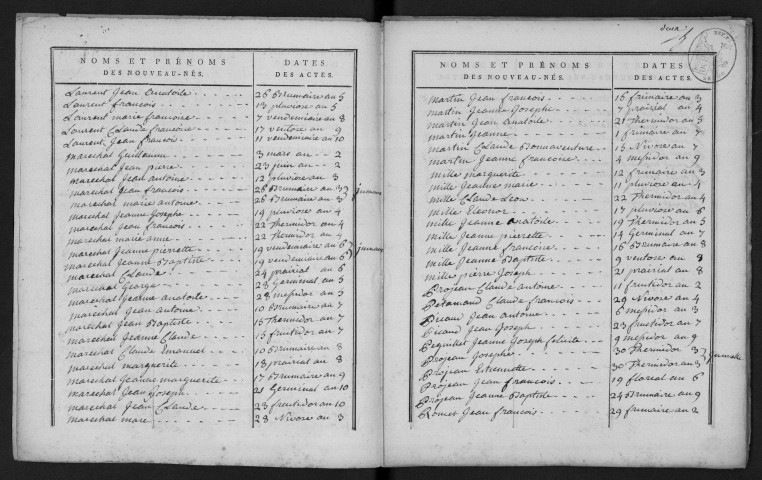 NOMS ET PRÉNOMS
DES NOUVEAU-NÉS.
DATES
DES ACTES.
Laurent Jean Anatoile 26 Brumaire an 5
Laurent francois 13 pluviose an 5
Laurent marie francoise 7 vendemiaire an 8
Laurent Claude francoise 17 ventose an 9
Laurent Jean francois 11 vendemiaire an 10
Marechal Guillaume 3 mars an 2
marechal Jean pierre 23 juin an 2
marechal Jean antoine 12 pluviose an 3
marechal Jean francois 26 Brumaire an 3 } jumeaux
marechal marie antoine 26 Brumaire an 3
marechal Jeanne Josephe 19 pluviose an 4
marechal Jean francois 22 Thermidor an 4
marechal marie anne 22 Thermidor an 4
marechal Jeanne pierrette 19 vendemiaire an 6 } jumeaux
marechal Jeanne Baptiste 19 vendemiaire an 6
marechal Claude 24 prairial an 6
marechal George 28 Germinal an 5
marechal Jeanne anatoile 28 messidor an 5
marechal Jean antoine 10 Brumaire an 7
marechal Jean Baptiste 15 Thermidor an 7
marechal Jeanne Claude 15 fructidor an 7
marechal Claude Emanuel 10 Brumaire an 8
marechal marguerite 18 prairial an 8
marechal Jeanne marguerite 17 Brumaire an 9
marechal Jean Joseph 21 Germinal an 10
marechal Jean Claude 23 fructidor an 10
marechal marie 28 Nivose an 3
deux
NOMS ET PRÉNOMS
DES NOUVEAU-NÉS.
DATES
DES ACTES.
martin Jean francois 16 frimaire an 3
martin Jeanne Josephe 7 prairial an 4
martin Jean anatoile 21 Thermidor an 5
martin Jeanne 1 frimaire an 7
martin Claude Bonnaventure 15 Nivose an 7
martin Jeanne francoise 4 messidor an 9
mille marguerite 12 frimaire an 3
mille Jeanne marie 11 pluviose an 4
mille Claude Leon 22 Thermidor an 4
mille Eleonor 17 pluviose an 6
mille Jeanne anatoile 19 Thermidor an 5
mille Jeanne pierrette 14 Germinal an 7
mille Jeanne francoise 16 Brumaire an 8
mille Jeanne Baptiste 9 ventose an 8
mille pierre Joseph 21 prairial an 8
Projean Claude antoine 11 fructidor an 2
Claude francois 29 Nivose an 4
Jean antoine 6 messidor an 3
Jean Joseph 23 fructidor an 7
Jeanne Joseph 9 messidor an 9
Projean Josephe 30 Thermidor 3 } jumelle
Projean Etiennette 30 Thermidor an 3
Projean Jean francois 19 floreal an 6
Projean Jeanne Baptiste 24 Brumaire an 9
Romet Jean francois 29 frimaire an 2